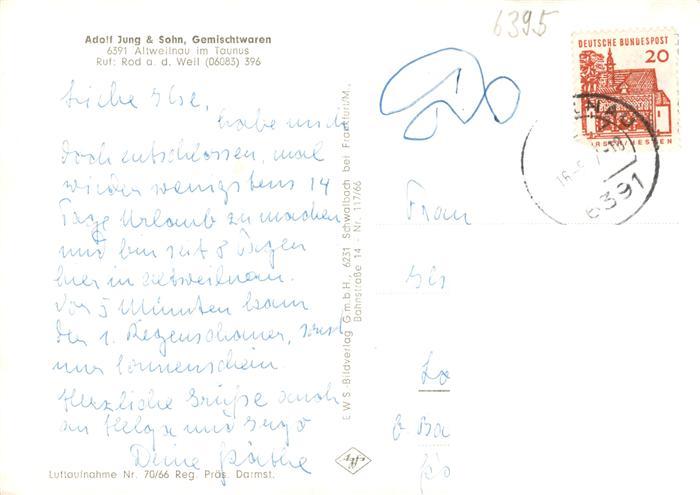 6395
Adolf Jung & Sohn, Gemischtwaren
6391 Altweilnau im Taunus
Ruf: Rod a. d. Weil (06083) 396
Liebe Ilse,
habe mich
doch entschlossen, mal
wieder wenigstens 14
Tage Urlaub zu machen
und bin seit 8 Tagen
hier in Altweilnau.
Vor 5 Minuten kam
der 1. Regenschauer, sonst
nur Sonnenschein.
Herzliche Grüße auch
an Helga und Ingo
Deine Käthe
Luftaufnahme Nr. 70/66 Reg. Präs. Darmst.
E W S -Bildverlag G.m.b.H., 6231 Schwalbach bei Frankfurt/M.
Bahnstraße 14 - Nr. 117/66
DEUTSCHE BUNDESPOST
20
LORSCH/HESSEN
6391
Frau
Ils